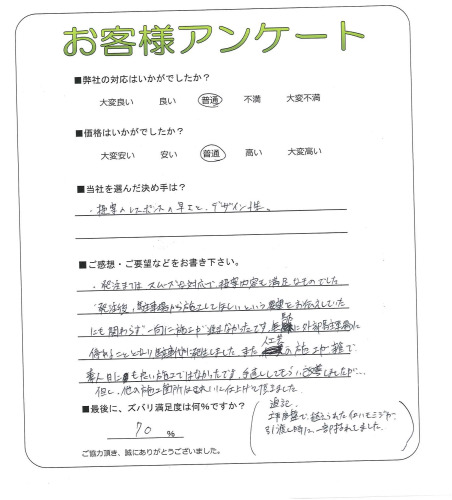 お客様アンケート
■弊社の対応はいかがでしたか？
大変良い 良い 普通 不満 大変不満
■価格はいかがでしたか？
大変安い 安い 普通 高い 大変高い
■当社を選んだ決め手は？
・提案のレスポンスの早さと、デザイン性。
■ご感想・ご要望などをお書き下さい。
・発注まではスムーズな対応で、提案内容も満足なものでした
発注後、駐車場から施工してほしいという要望をお伝えしていた
にも関わらず一向に施工が進まなかったです。 に外部駐車場に
停めることとなり駐車代が発生しました。また 人工芝の施工が雑で
素人目にも良い施工ではなかったです。手直ししてもらい改善しましたが…
但し、他の施工箇所はきれいに仕上げて頂きました。
■最後に、ズバリ満足度は何％ですか？
70 ％
追記
で植えられた イロハモミジが
引渡し時に、一部 されてました。
ご協力頂き、誠にありがとうございました。